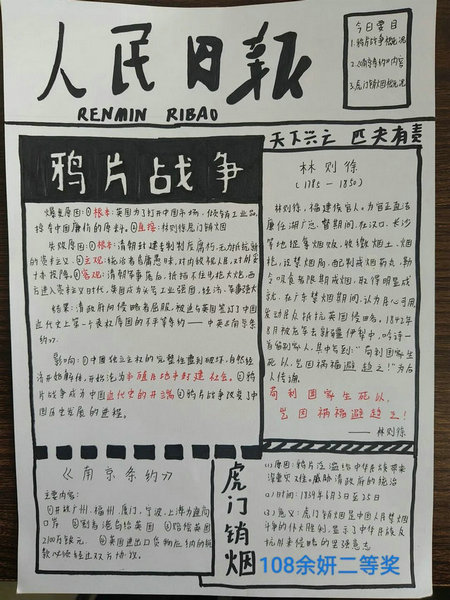 人民日报
RENMIN RIBAO
今日要目
1.鸦片战争概况
2.《南京条约》内容
3.虎门销烟概况
天下兴亡 匹夫有责
鸦片战争
爆发原因:①根本:英国为了打开中国市场,倾销工业品,
掠夺中国廉价的原料。②直接:林则徐虎门销烟
失败原因:①根本:清朝封建专制制度腐朽,无力抵抗新
的资主义②主观:统治者昏庸愚昧,对内
③客观:清朝军事落后,
西方进入资主义时代,英国成为头号工业强国,经济、军事强大
结果:清政府向侵略者屈服,被迫与英国签订了中国
近代史上第一个丧权辱国的不平等条约——中英《南京条
约》。
影响:①中国独立主权的完整性遭到破坏,自然经
济开始解体,开始沦为半殖民地半封建社会。②鸦
片战争成为中国近代史的开端③鸦片战争改变了中
国历史发展的进程。
林则徐
(1785-1850)
林则徐,福建侯官人。为官正直清
廉任湖广总督期间,在汉口、长沙
等地组织烟贩,收缴烟土、烟
枪,还禁烟局,配制戒烟药品,勒
令吸食者限期戒烟,取得明显成
就,在广东禁烟期间,认为民心可用
发动群众抵抗英国侵略。1842年
8月被发往新疆伊犁中,吟诗一
首留别家人,其中写到:“苟利国家生
死以,岂因祸福避趋之!”为后
人传诵
苟利国家生死以,
岂因祸福避趋之!
——林则徐
《南京条约》
主要内容:
①开放广州,福州,厦门,宁波,上海为通商
口岸 ②割香港岛给英国 ③赔偿英国
2100万银元 ④英国进出口货物应纳的税
款必须经过双方协议。
虎门销烟
(1)原因:鸦片泛滥给中华民族带来
深重灾难。威胁清政府的统治
(2)时间:1839年6月3日至25日
(3)意义:虎门销烟是中国人民禁烟
斗争的伟大胜利,显示了中华民族反
抗外来侵略的坚强意志
108余妍二等奖